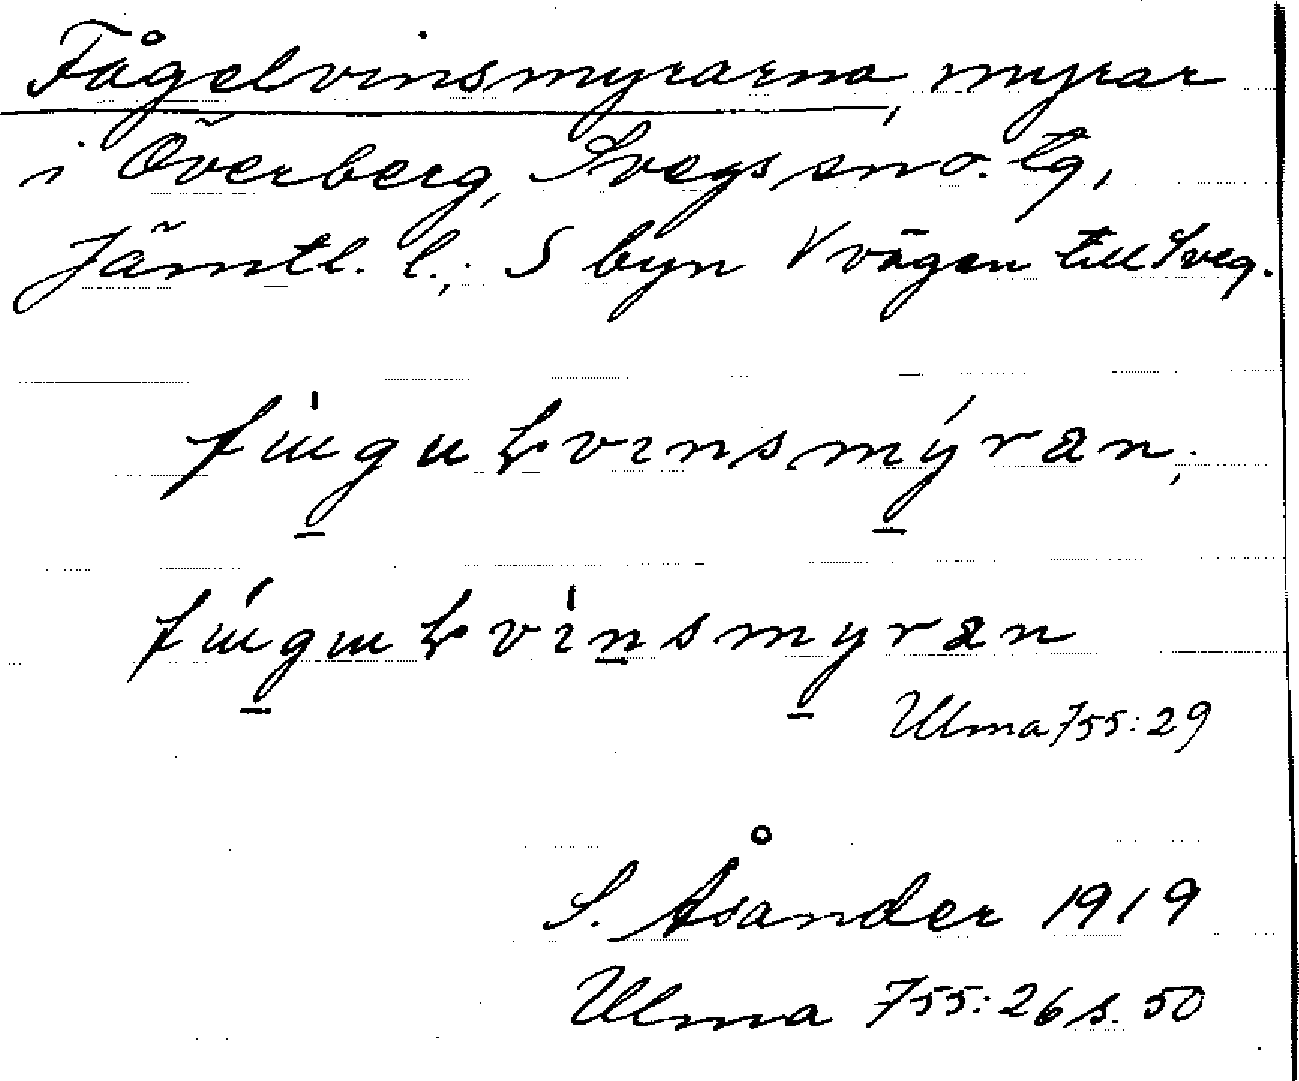 Fågelvinsmyrarna, myrar
i Överberg, Svegs sn o. tg,
Jämtl. l.; S byn V vägen till Sveg.
fɯguƚvɪnsmýran;
fɯgɯƚvɪnsmyran
Ulma 755:29
S. Åsander 1919
Ulma 755:26 s. 50